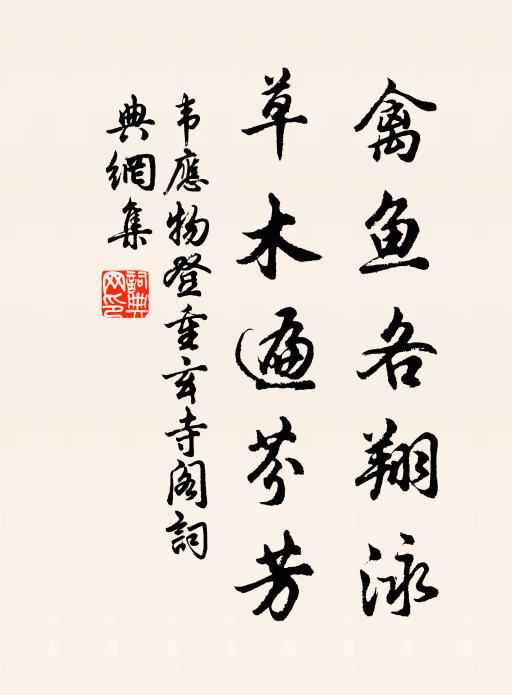 禽鱼各翔泳
草木遍芬芳
韦應物登重玄寺阁詞
典網集
詞典網印